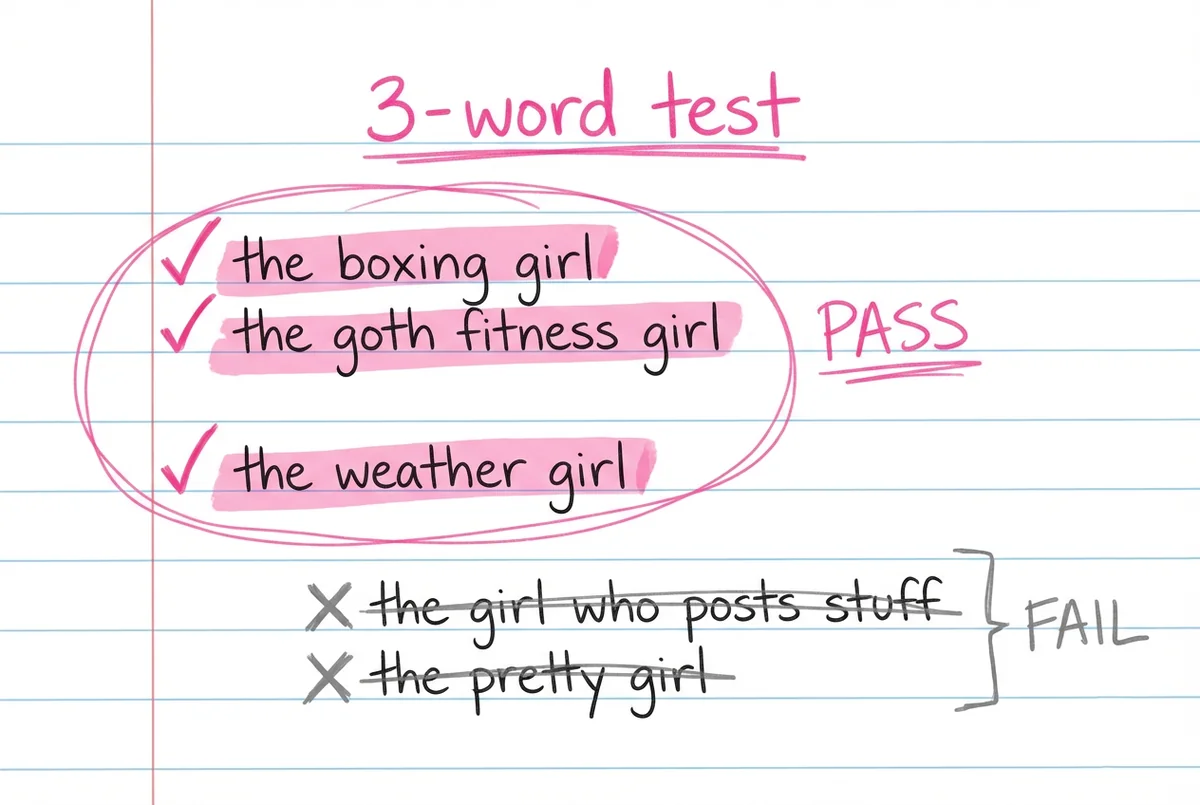 3-word test
✓ the boxing girl
✓ the goth fitness girl
PASS
✓ the weather girl
X the girl who posts stuff
X the pretty girl
FAIL